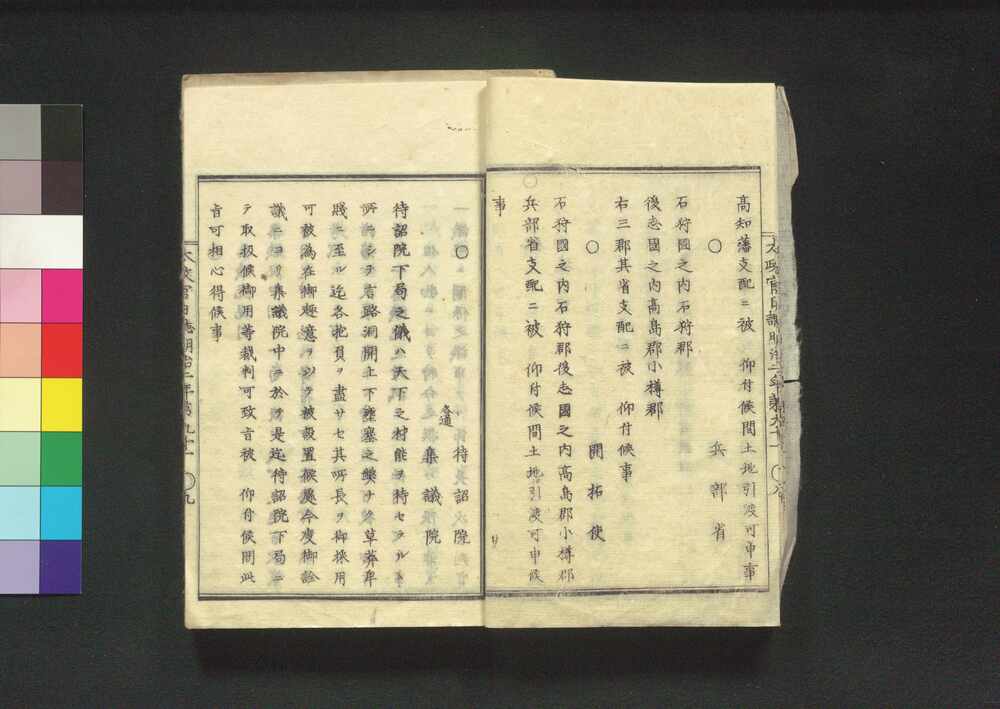 高知藩支配ニ被　仰付候間土地引渡可申事
○　　　　　　　兵部省
石狩國之内石狩郡
後志國之内高島郡小樽郡
右三郡其省支配ニ被　仰付候事
○　　　　　　　開拓使
石狩國之内石狩郡後志國之内高島郡小樽郡
兵部省支配ニ被　仰付候間土地引渡可申候
事
○　　　　　　　待詔院
各通　集議院
待詔院下局之儀ハ天下之材能ヲ待セラルヽ
所ニシテ言路洞開上下壅塞之弊ナク草莽卑
賤ニ至ル迄各抱負ヲ盡サセ其所長ヲ御採用
可被為在御趣意ヲ以テ被設置候處今度御詮
議ニヨリ集議院中ニ於テ是迄待詔院下局ニ
テ取扱候御用等裁判可致旨被　仰付候間此
旨可相心得候事
太政官日誌明治二年第九十一　○九